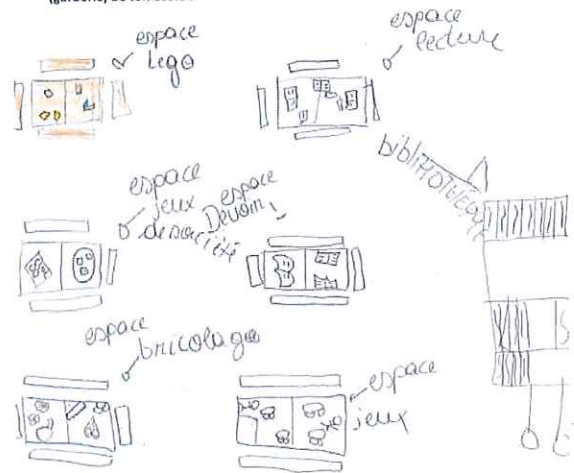 espace
Lego
espace
lecture
bibliothèque
espace
jeux
de société
espace
Devoin
espace
bricolage
espace
jeux